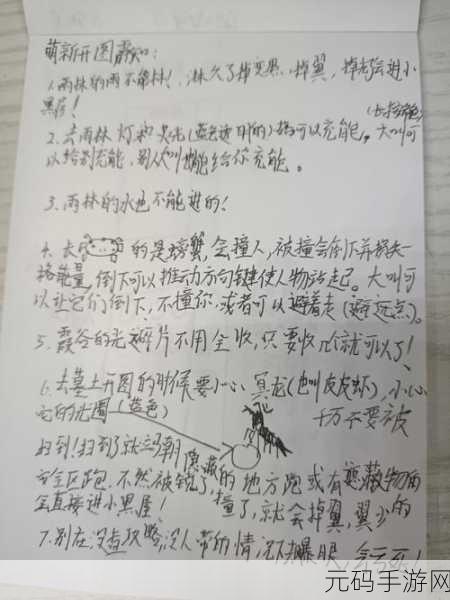 萌新开图需知：
1.雨林的雨不能淋！淋久了掉光，掉翼，掉光会进小
黑屋！
2.去雨林 灯和 都可以充能。大叫可
以给别充能，别人叫也能给你充能。
3.雨林的水也不能进的！
4.长 的是螃蟹，会撞人，被撞会倒下并损失一
格能量，倒下可以推动方向键使人物站起。大叫可
以让它们倒下，不撞你，或者可以避着走（避远点）。
5.霞谷的光碎片不用全收，只要收几个就可以了！
6.去墓土开图的时候要小心冥龙（也叫皮皮虾），小心
它的光圈（蓝色） 千万不要被
扫到！扫到了就立朝隐藏的地方跑或有遮蔽物的
安全区跑，不然被锁了，撞了，就会掉翼，翼少的
会直接进小黑屋！
7.别在没看攻略，没人带的情况下
元码手游网